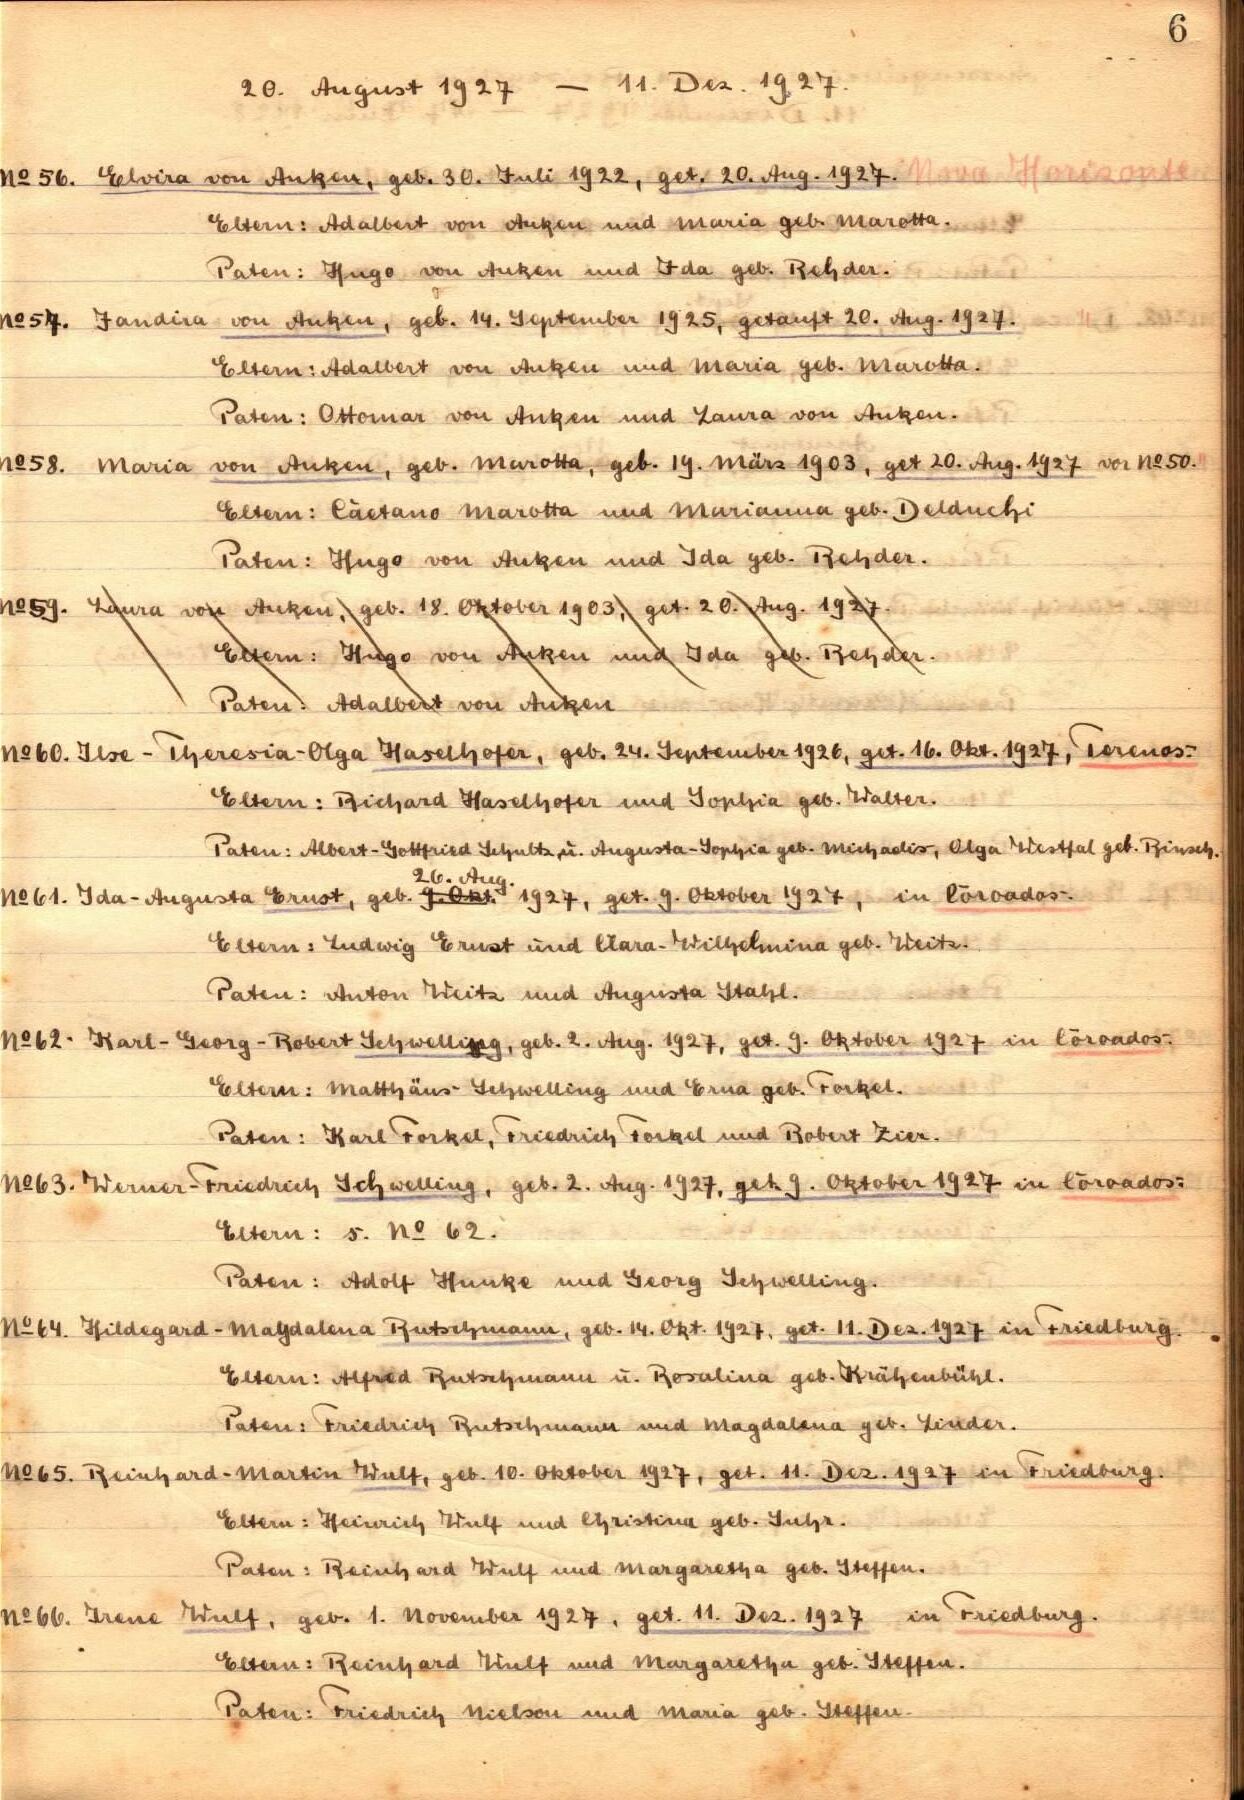 6
20. August 1927 — 11. Dez. 1927.
No 56. Elvira von Anken, geb. 30. Juli 1922, get. 20. Aug. 1927. Nova Horizonte
Eltern: Adalbert von Anken und Maria geb. Marotta.
Paten: Hugo von Anken und Ida geb. Rehder.
No 57. Jandira von Anken, geb. 14. September 1925, getauft 20. Aug. 1927. "
Eltern: Adalbert von Anken und Maria geb. Marotta.
Paten: Ottomar von Anken und Laura von Anken.
No 58. Maria von Anken, geb. Marotta, geb. 19. März 1903, get 20. Aug. 1927 vor No 50. "
Eltern: Cäetano Marotta und Marianna geb. Delduchi
Paten: Hugo von Anken und Ida geb. Rehder.
No 59. Laura von Anken, geb. 18. Oktober 1903, get. 20. Aug. 1927.
Eltern: Hugo von Anken und Ida geb. Rehder.
Paten: Adalbert von Anken
No 60. Ilse-Theresia-Olga Haselhofer, geb. 24. September 1926, get. 16. Okt. 1927, Terenos:
Eltern: Richard Haselhofer und Sophia geb. Walter.
Paten: Albert-Gottfried Schultz, u. Augusta-Sophia geb. Michaelis, Olga Westfal geb. Binsch.
26. Aug.
No 61. Ida-Augusta Ernst, geb. 9. Okt. 1927, get. 9. Oktober 1927, in Cōroados.
Eltern: Ludwig Ernst und Clara-Wilhelmina geb. Weitz.
Paten: Anton Weitz und Augusta Stahl.
No 62. Karl-Georg-Robert Schwelling, geb. 2. Aug. 1927, get. 9. Oktober 1927 in Cōroados:
Eltern: Matthäus Schwelling und Erna geb. Forkel.
Paten: Karl Forkel, Friedrich Forkel und Robert Zier.
No 63. Werner-Friedrich Schwelling, geb. 2. Aug. 1927, get. 9. Oktober 1927 in Cōroados:
Eltern: s. No 62.
Paten: Adolf Hunke und Georg Schwelling.
No 64. Hildegard-Magdalena Rutschmann, geb. 14. Okt. 1927, get. 11. Dez. 1927 in Friedburg.
Eltern: Alfred Rutschmann u. Rosalina geb. Krähenbühl.
Paten: Friedrich Rutschmann und Magdalena geb. Linder.
No 65. Reinhard-Martin Wulf, geb. 10. Oktober 1927, get. 11. Dez. 1927 in Friedburg.
Eltern: Heinrich Wulf und Christina geb. Suhr.
Paten: Reinhard Wulf und Margaretha geb. Steffen.
No 66. Irene Wulf, geb. 1. November 1927, get. 11. Dez. 1927 in Friedburg.
Eltern: Reinhard Wulf und Margaretha geb. Steffen.
Paten: Friedrich Nielson und Maria geb. Steffen.